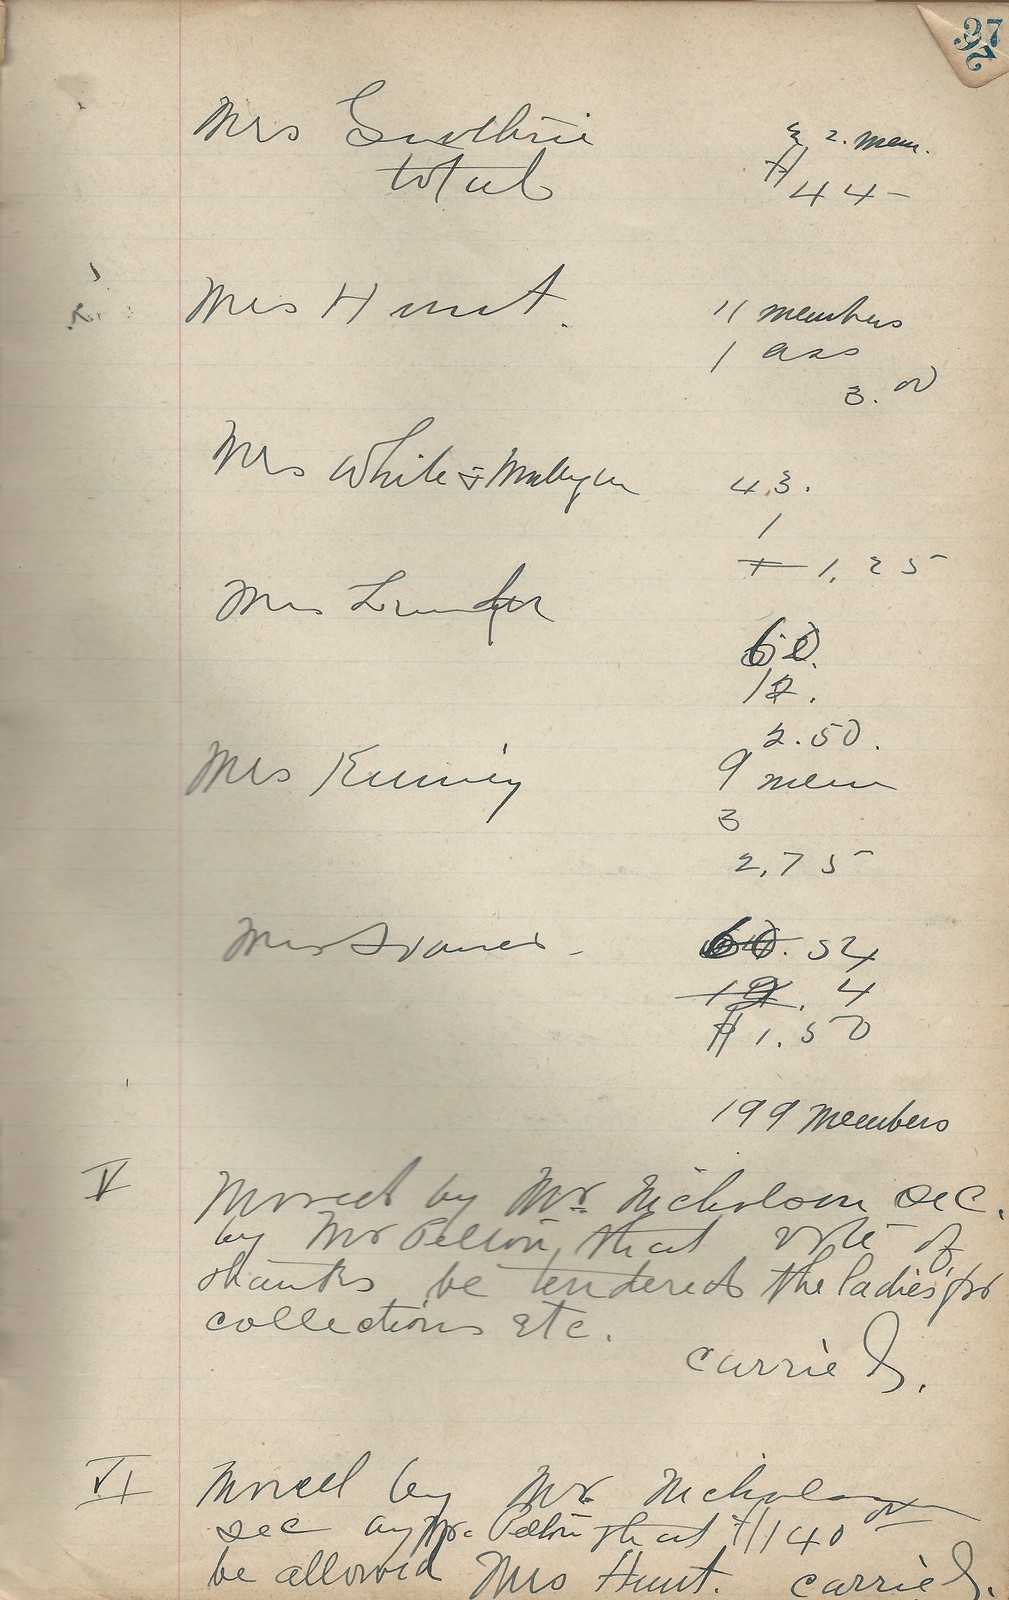 37
Mrs Guthrie & 2. mem.
total $44-
Mrs Hunt. 11 members
1 ass
3.00
Mrs White & 43.
1
1.25
Mrs
60.
12.
2.50.
Mrs 9 mem
3
2,75
Mrs 60. 54
12. 4
$1.50
199 Members
V Moved by Mr. Nicholson sec.
by Mr Pelton, that vote of
thanks be tendered the ladies for
collections etc.
carried.
VI Moved by Mr. Nicholson
sec by Mr. Pelton that $140 00
be allowed Mrs Hunt. carried.